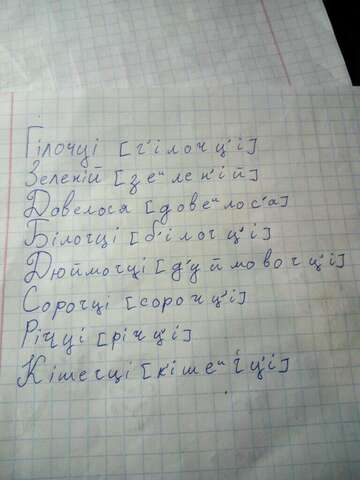 Гілочці [г'ілочц'і]
Зеленій [зеⁿлен'ій]
Довелося [довеⁿлос'а]
Білочці [б'ілочц'і]
Дюймочці [д'уймовочц'і]
Сорочці [сорочц'і]
Річці [річц'і]
Кішечці [кішеⁿчц'і]